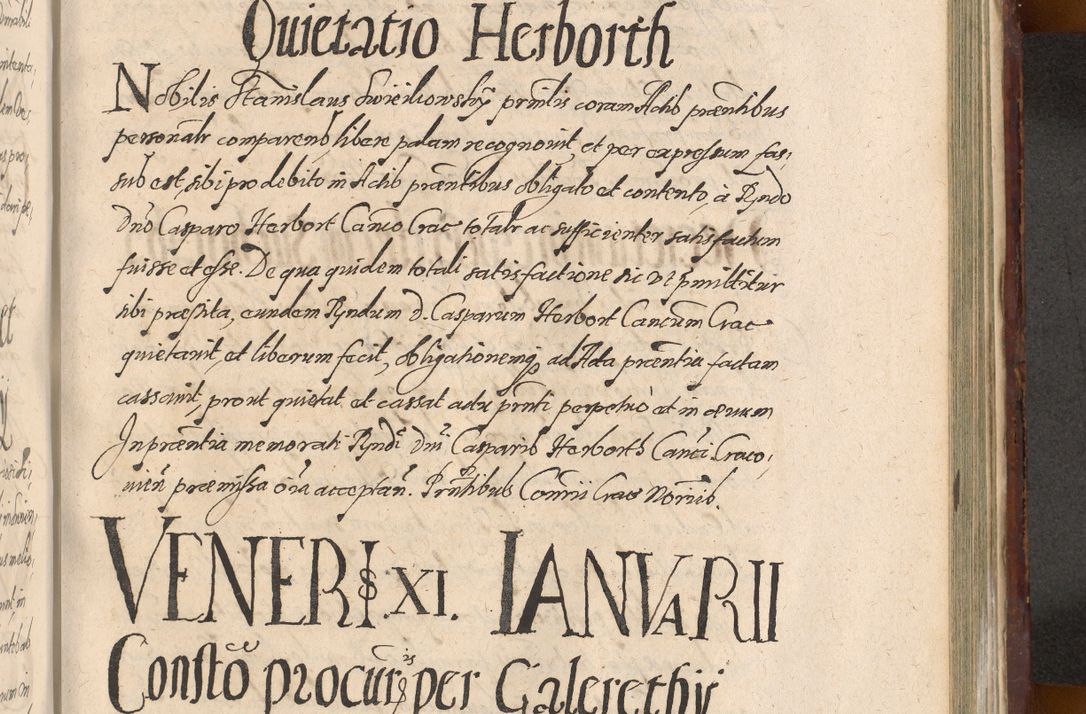 Quietatio Herborth
Nobilis Stanislaus Swieiliowsky prmlis coram Actib præntibus
personalr comparens libere palam recognovit et per expressum fas,
sub est, sibi pro debito in Actib præntibus obligato et contento, à Rndo
Dno Casparo Herbort Canco Crac totalr ac sufficienter satisfactum
fuisse et esse. De qua quidem totali satisfactione sic ut pmittitur
sibi præstita, eundem Rndum D. Casparum Herbort Cancum Crac
quietavit, et liberum fecit, obligationemq ad Acta præntia factam
cassavit, prout quietat et cassat actu prnti perpetuò et in ævum
In præntia memorati Rndi Dni Casparis Herborth Canci Craco,
vien præmissa oia acceptan. Prntibus Comrii Crac Noriis.
VENERIS XI. IANVARII
Constō procuris per Galerethij